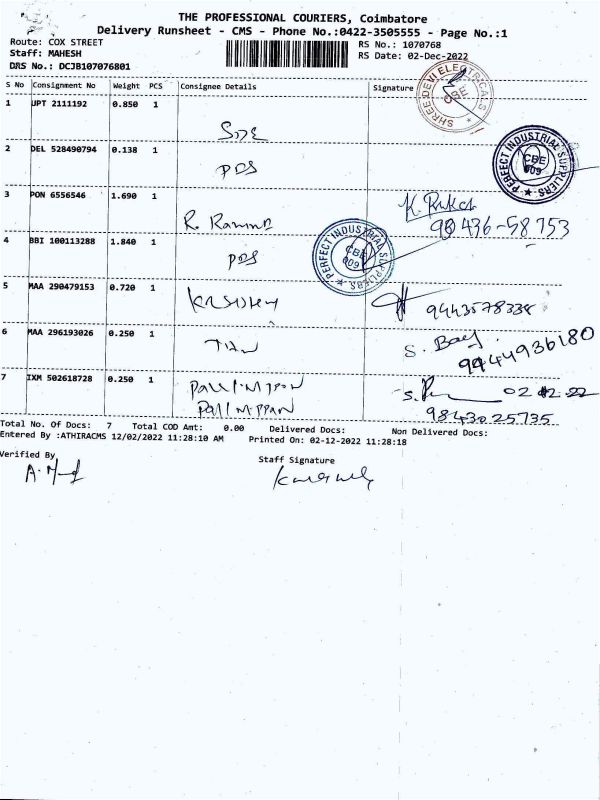 THE PROFESSIONAL COURIERS, Coimbatore
Delivery Runsheet - CMS - Phone No.:0422-3505555 - Page No.:1
Route: COX STREET RS No.: 1070768
Staff: MAHESH RS Date: 02-Dec-2022
DRS No.: DCJB107076801
S No Consignment No Weight PCS Consignee Details Signature
SHREE DEVI ELECTRICALS CBE
1 JPT 2111192 0.850 1
SDE
2 DEL 528490794 0.138 1
PDS
PERFECT INDUSTRIAL SUPPLIERS CBE 009
3 PON 6556546 1.690 1
R. Raman K. Rakesh
90436-58753
4 BBI 100113288 1.840 1
PDS
PERFECT INDUSTRIAL SUPPLIERS CBE 009
5 MAA 290479153 0.720 1
9443578338
6 MAA 296193026 0.250 1
S.
9444936180
7 IXM 502618728 0.250 1
Pallinppan S. 02 12-22
Pallinppan 9843025735
Total No. Of Docs: 7 Total COD Amt: 0.00 Delivered Docs: Non Delivered Docs:
Entered By :ATHIRACMS 12/02/2022 11:28:10 AM Printed On: 02-12-2022 11:28:18
Verified By Staff Signature